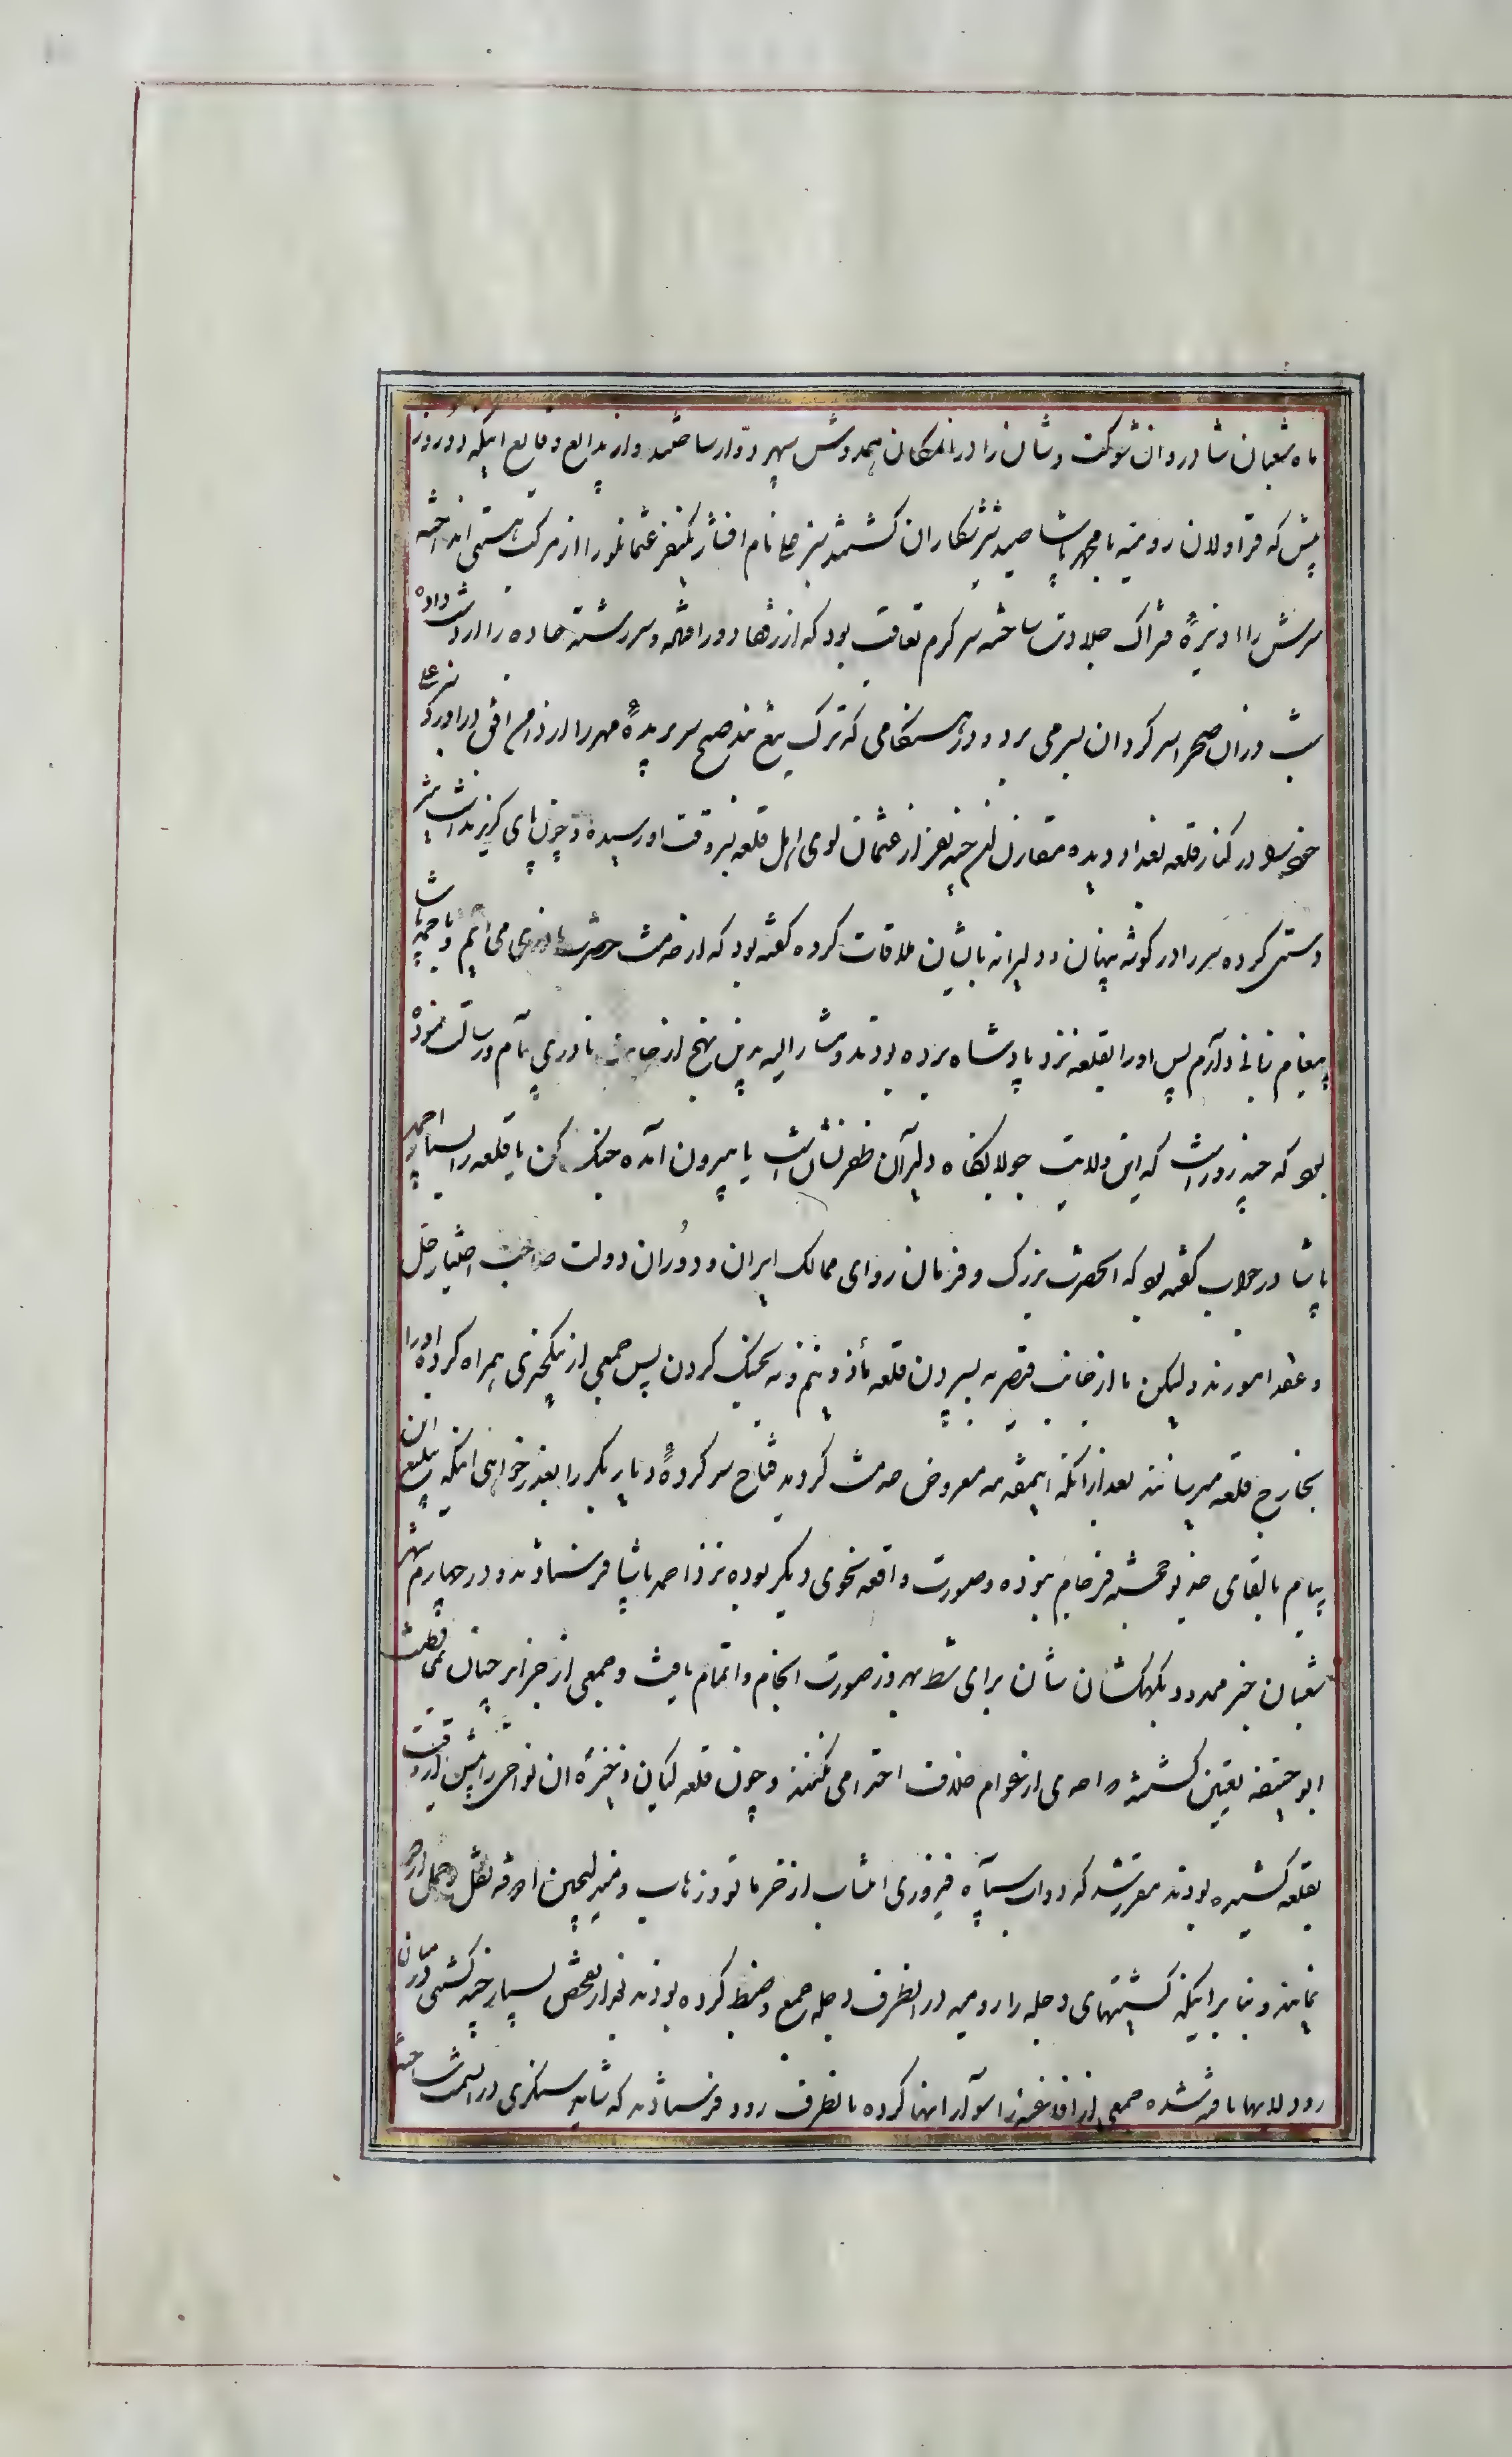 ماه شعبان شادروان شوکت و شان را در انمکان همدوش سپهر دوّار ساختند و از بدایع وقایع اینکه دو روز
پیش که قراولان رومیه با محمد پاشا صید شیرشکاران گشتند نیزعلی نام افشار یکنفر عثمانلو را از مرکب هستی انداخته
سرش را اویزهٔ فتراک جلادت ساخته سرکرم تعاقب بود که از رفقا دور افتاده و سررشته جاده را از دست داده
شب در ان صحرا سرکردان بسر می برد و در هنکامی که ترک تیغ بند صبح سر بریدهٔ مهر را از دامن افق در اورد
خود را در کنار قلعه بغداد دیده مقارن ان چند نفر از عثمانلوی اهل قلعه بروقت او رسیده و چون پای کریز نداشت پیش
دستی کرده سر را در کوشه پنهان و دلیرانه بایشان ملاقات کرده گفته بود که از خدمت حضرت نادری می آیم و با احمد پاشا
پیغام زبانی دارم پس او را بقلعه نزد پادشاه برده بودند و مشار الیه بدین نهج از جانب نادری پیام و رسالت نموده
بود که چند روز است که این ولایت جولانکاه دلیران ظفر نشان است یا بیرون آمده جنک کن یا قلعه را بسپار احمد
پاشا در جواب گفته بود که انحضرت بزرک و فرمان روای ممالک ایران و دوران دولت صاحب اختیار حل
و عقد امورند و لیکن ما از جانب قیصر نه بسپردن قلعه مأذونیم و نه بجنک کردن پس جمعی از ینکچری همراه کرده او را
بخارج قلعه میرسانند بعد از انکه اینمقدمه معروض خدمت کردید فتاح سرکردهٔ دیار بکر را بعذر خواهی اینکه تبلیغ این
پیام بالقای خدیو خجسته فرجام نبوده و صورت واقعه نحوی دیکر بوده نزد احمد پاشا فرستادند و در چهارم شهر
شعبان جسر ممدود بکهکشان سان برای شط بهروز صورت انجام و اتمام یافت و جمعی از جزایر چیان بمحافظت
ابو حنیفه تعیین گشتند که احدی از عوام خلاف احترامی نکنند و چون قلعه کیان ذخیرهٔ ان نواحی را پیش از وقت
بقلعه کشیده بودند مقرر شد که دواب سپاه فیروزی انتساب از خرماتو و زهاب و مندلیجین اذوقه نقل و حمل اردو
نمایند و بنا بر اینکه کشتیهای دجله را رومیه در انطرف دجله جمع و ضبط کرده بودند بعد از تفحص بسیار چند کشتی در میان
رود لایها یافت شده جمعی از افاغنه را سوار انها کرده بانطرف رود فرستادند که شاید سنکری در انسمت احداث